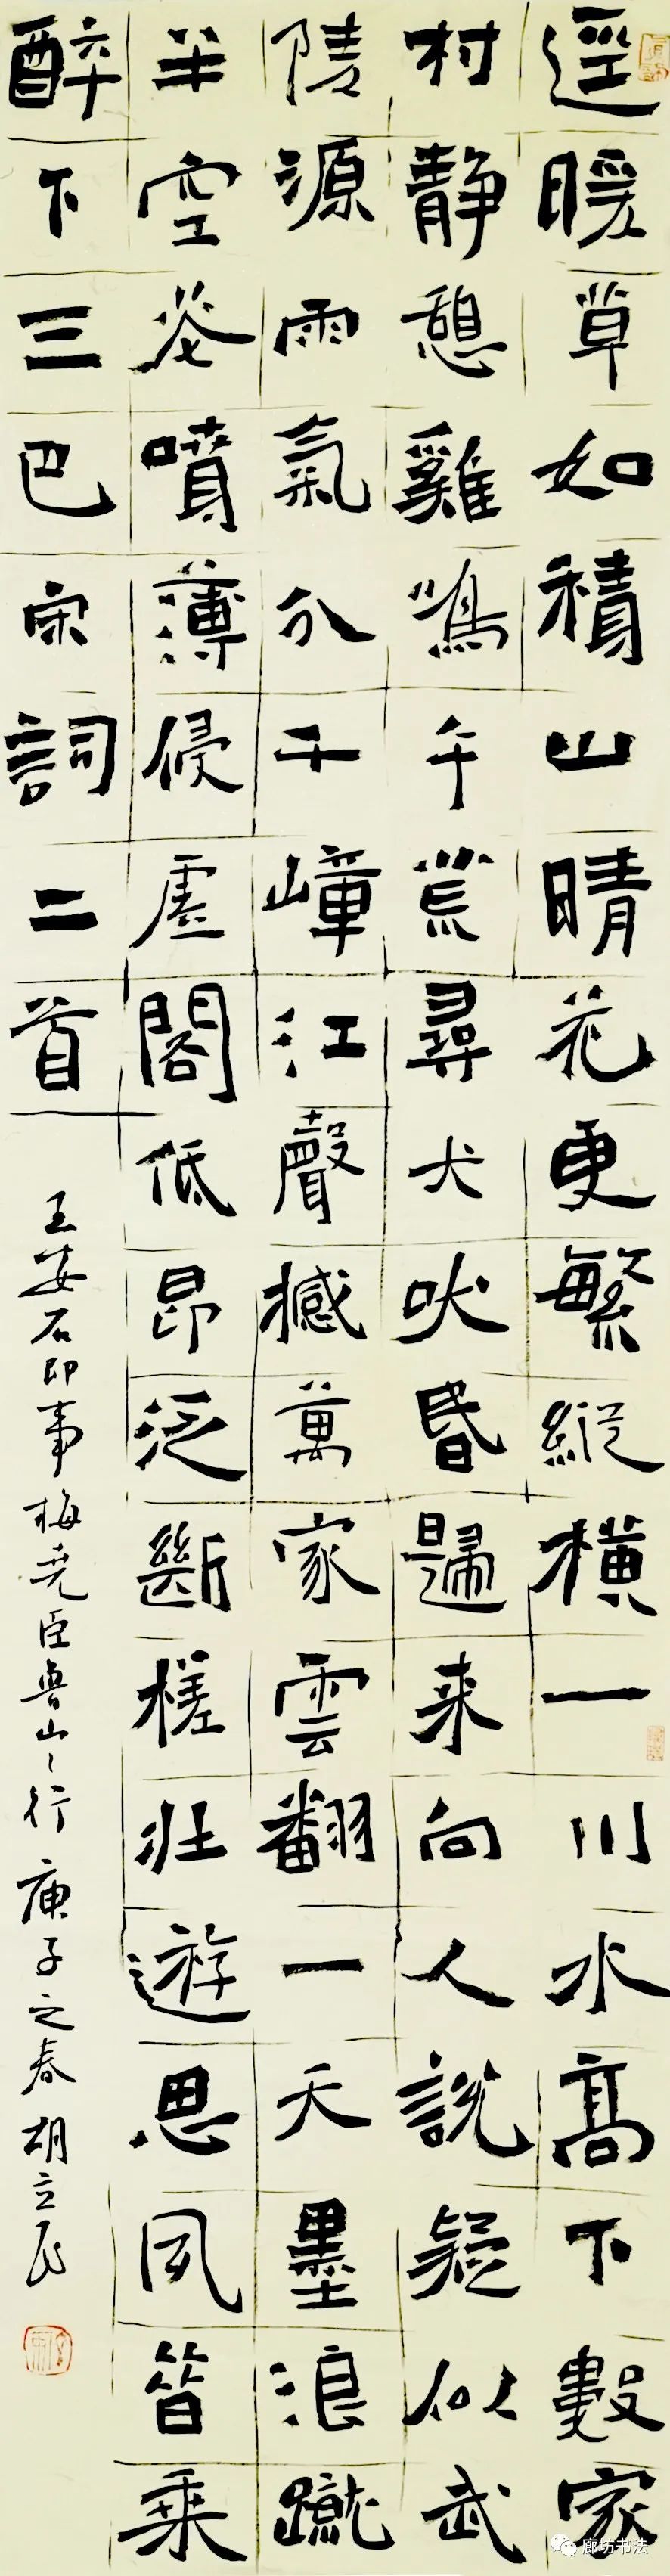 逕暖草如積山晴花更繁縱橫一川水高下數家
村靜憩雞鳴午荒尋犬吠昏歸来向人說疑似武
陵源雨氣分千嶂江聲撼萬家雲翻一天墨浪蹴
半空花噴薄侵虛閣低昂泛斷槎壯遊思夙昔乘
醉下三巴宋詞二首
王安石即事梅堯臣魯山山行庚子之春胡立民
廊坊书法